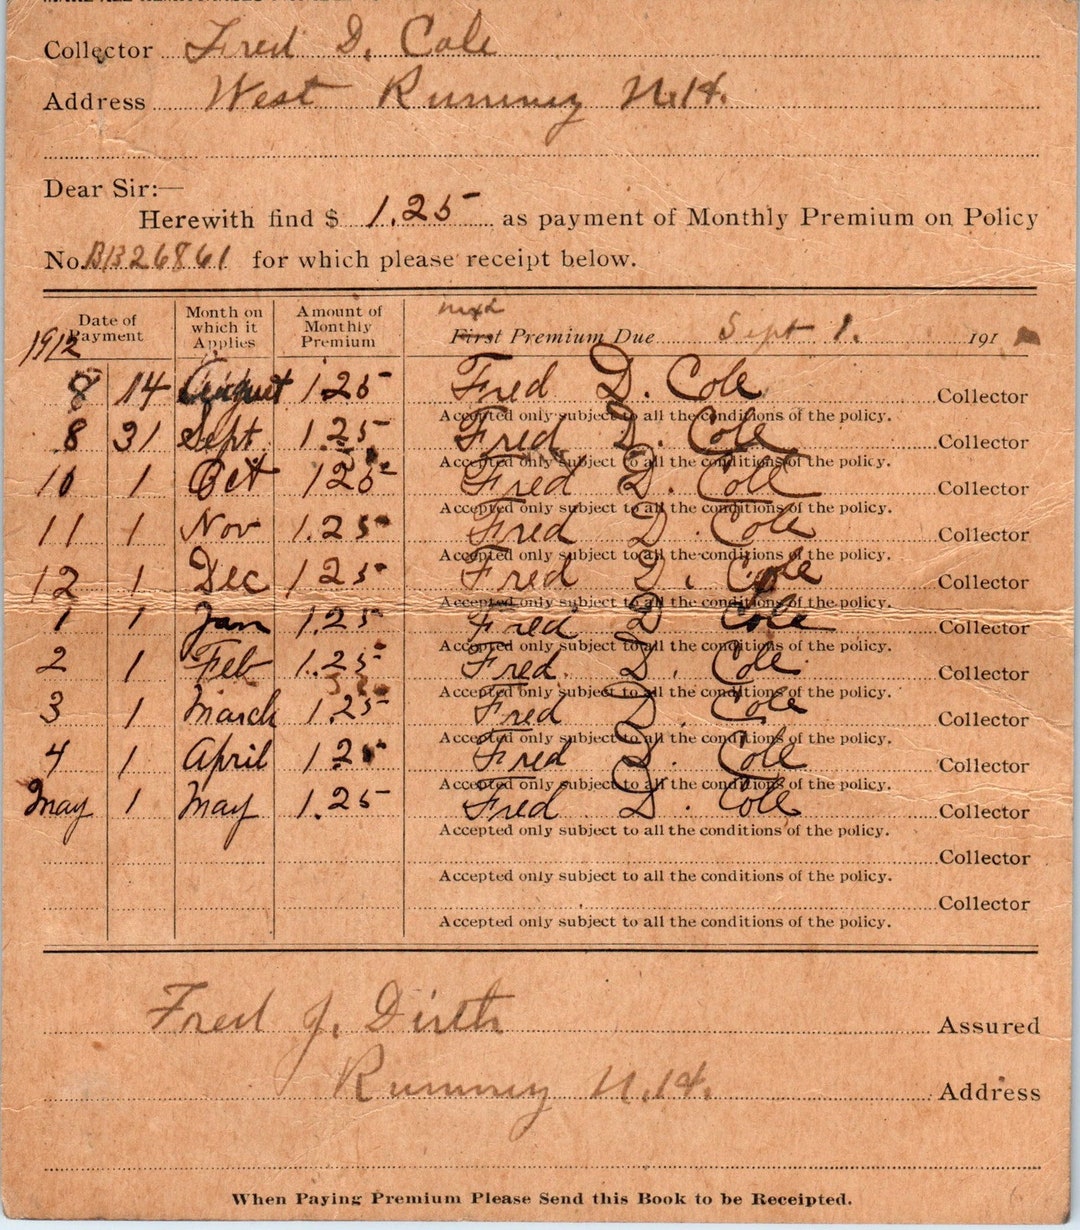 Collector Fred D. Cole
Address West Rumney N.H.
Dear Sir:—
Herewith find $ 1.25 as payment of Monthly Premium on Policy
No. BB26861 for which please receipt below.
Date of Payment Month on which it Applies Amount of Monthly Premium First next Premium Due Sept 1. 191
1912
8 14 August 1.25 Fred D. Cole Collector
Accepted only subject to all the conditions of the policy.
8 31 Sept. 1.25 Fred D. Cole Collector
Accepted only subject to all the conditions of the policy.
10 1 Oct 1 25 Fred D. Cole Collector
Accepted only subject to all the conditions of the policy.
11 1 Nov 1.25 Fred D. Cole Collector
Accepted only subject to all the conditions of the policy.
12 1 Dec 1 25 Fred D. Cole Collector
Accepted only subject to all the conditions of the policy.
1 1 Jan 1.25 Fred D Cole Collector
Accepted only subject to all the conditions of the policy.
2 1 Feb 1.25 Fred. D. Cole Collector
Accepted only subject to all the conditions of the policy.
3 1 March 1.25 Fred D. Cole Collector
Accepted only subject to all the conditions of the policy.
4 1 April 1.25 Fred D. Cole Collector
Accepted only subject to all the conditions of the policy.
May 1 May 1.25 Fred D. Cole Collector
Accepted only subject to all the conditions of the policy.
Collector
Accepted only subject to all the conditions of the policy.
Collector
Accepted only subject to all the conditions of the policy.
Fred J. Assured
Rumney N.H. Address
When Paying Premium Please Send this Book to be Receipted.